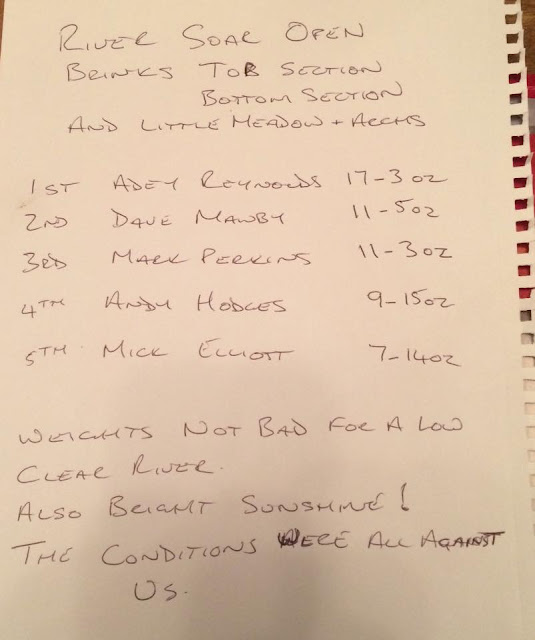 RIVER SOAR OPEN
BRINKS TOP SECTION
BOTTOM SECTION
AND LITTLE MEADOW + ARCHS
1ST ADEY REYNOLDS 17-3oz
2ND DAVE MAWBY 11-5oz
3RD MARK PERKINS 11-3oz
4TH ANDY HODGES 9-15oz
5TH MICK ELLIOTT 7-14oz
WEIGHTS NOT BAD FOR A LOW
CLEAR RIVER.
ALSO BRIGHT SUNSHINE!
THE CONDITIONS WERE ALL AGAINST
US.